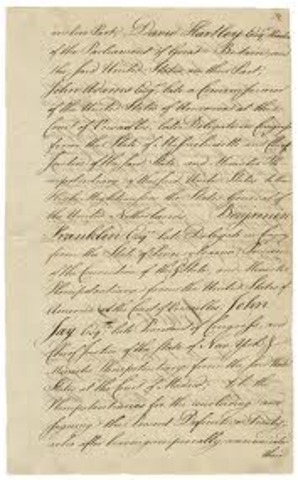 on their Part; David Hartley Esqr. Member
of the Parliament of Great Britain and
the said United States on their Part;
John Adams Esqr. late a Commissioner
of the United States of America at the
Court of Versailles, late Delegate in Congress
from the State of Massachusetts and Chief
Justice of the said State, and Minister Ple
nipotentiary of the said United States to their
High Mightinesses the States General of
the United Netherlands. Benjamin
Franklin Esqr. late Delegate in Congress
from the State of Pennsylvania, President
of the Convention of the sd. State, and Minister
Plenipotentiary from the United States of
America at the Court of Versailles, John
Jay Esqr. late President of Congress, and
Chief Justice of the State of New York &
Minister Plenipotentiary from the said United
States at the Court of Madrid; to be the
Plenipotentiaries for the concluding and
signing the present Definitive Treaty,
who after having reciprocally communicated
their